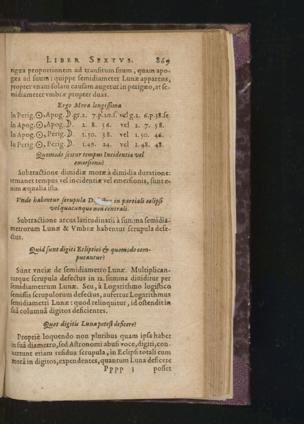 LIBER SEXTVS. 869
nigra proportionem ad transitum suum, quam apo-
gea ad suum: quippe semidiameter Lunæ apparens,
propter vnam solam causam augetur in perigæo, at se-
midiameter vmbræ propter duas.
Ergo Mora longissima
In Perig.☉, Apog.☽ gr.1. 7.p.20.s. vel g.1. 6.p.38.se.
In Apog.☉, Apog.☽ 1. 8. 16. vel 1. 7. 38.
In Perig.☉, Perig.☽ 1.50. 38. vel 1.50. 46.
In Apog.☉, Perig.☽ 1.49. 24. vel 1.48. 48.
Quomodo scitur tempus Incidentiæ vel
emersionis?
Subtractione dimidiæ moræ à dimidia duratione:
remanet tempus vel incidentiæ vel emersionis, sunt e-
nim æqualia ista.
Vnde habentur scrupula in partiali eclipsi
vel quacunque non centrali.
Subtractione arcus latitudinarii à summa semidia-
metrorum Lunæ & Vmbræ habentur scrupula defe-
ctus.
Quid sunt digiti Ecliptici & quomodo com-
putantur?
Sunt vnciæ de semidiametro Lunæ. Multiplican-
turque scrupula defectus in 12. summa diuiditur per
semidiametrum Lunæ. Seu, à Logarithmo logistico
semissis scrupulorum defectus, aufertur Logarithmus
semidiametri Lunæ: quod relinquitur, id ostendit in
sua columna digitos deficientes.
Quot digitis Luna potest deficere?
Propriè loquendo non pluribus quam ipsa habet
in sua diametro, sed Astronomi abusi voce, digiti, con-
uertunt etiam residua scrupula, in Eclipsi totali cum
mora in digitos, expendentes, quantum Luna deficere
Pppp 3 posset